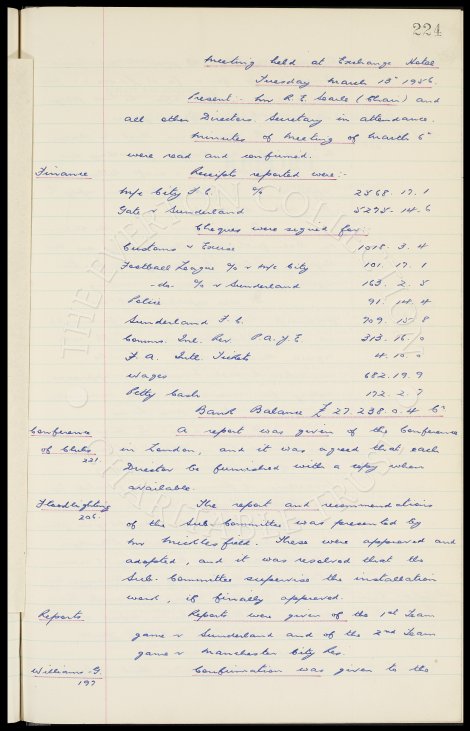 224
Meeting held at Exchange Hotel
Tuesday March 13th 1956.
Present - Mr R. E. Searle (Chair) and
all other Directors. Secretary in attendance.
Minutes of Meeting of March 6th
were read and confirmed.
Finance Receipts reported were:-
M/c City F.C. % 2568. 17. 1
Gate v Sunderland 5295. 14. 6
Cheques were signed for:
Customs & Excise 1018. 3. 4
Football League % v M/c City 101. 17. 1
-do- % v Sunderland 163. 2. 5
Police 91. 14. 4
Sunderland F.C. 709. 15. 8
Comms. Inl. Rev. P.A.Y.E. 313. 16. 0
F.A. Intl. Tickets 4. 10. 0
Wages 682. 19. 9
Petty Cash 172. 2. 7
Bank Balance £ 27,238. 0. 4 Cr
Conference A report was given of the Conference
of Clubs in London, and it was agreed that each
221 Director be furnished with a copy when
available.
Floodlighting The report and recommendations
206. of the Sub. Committee was presented by
Mr Micklesfield. These were approved and
adopted, and it was resolved that the
Sub. Committee supervise the installation
work, if finally approved.
Reports Reports were given of the 1st Team
game v Sunderland and of the 2nd Team
game v Manchester City Res.
Williams. G. Confirmation was given to the
197
© THE EVERTON COLLECTION
CHARITABLE TRUST